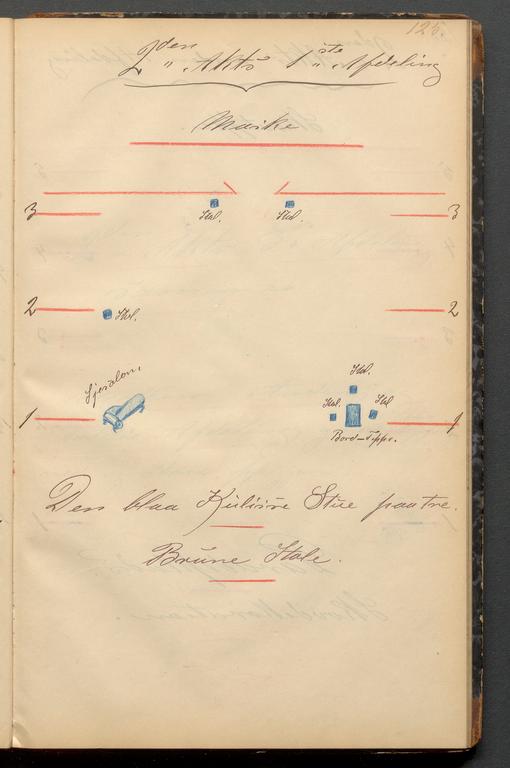 125.
2den Akts 1ste Afdeling
Maske
3 Stol. Stol. 3
2 Stol. 2
Stol.
Stol. Stol
1 1
Bord-Teppe.
Den blaa Kulisse Stue paa tre.
Brune Stole.